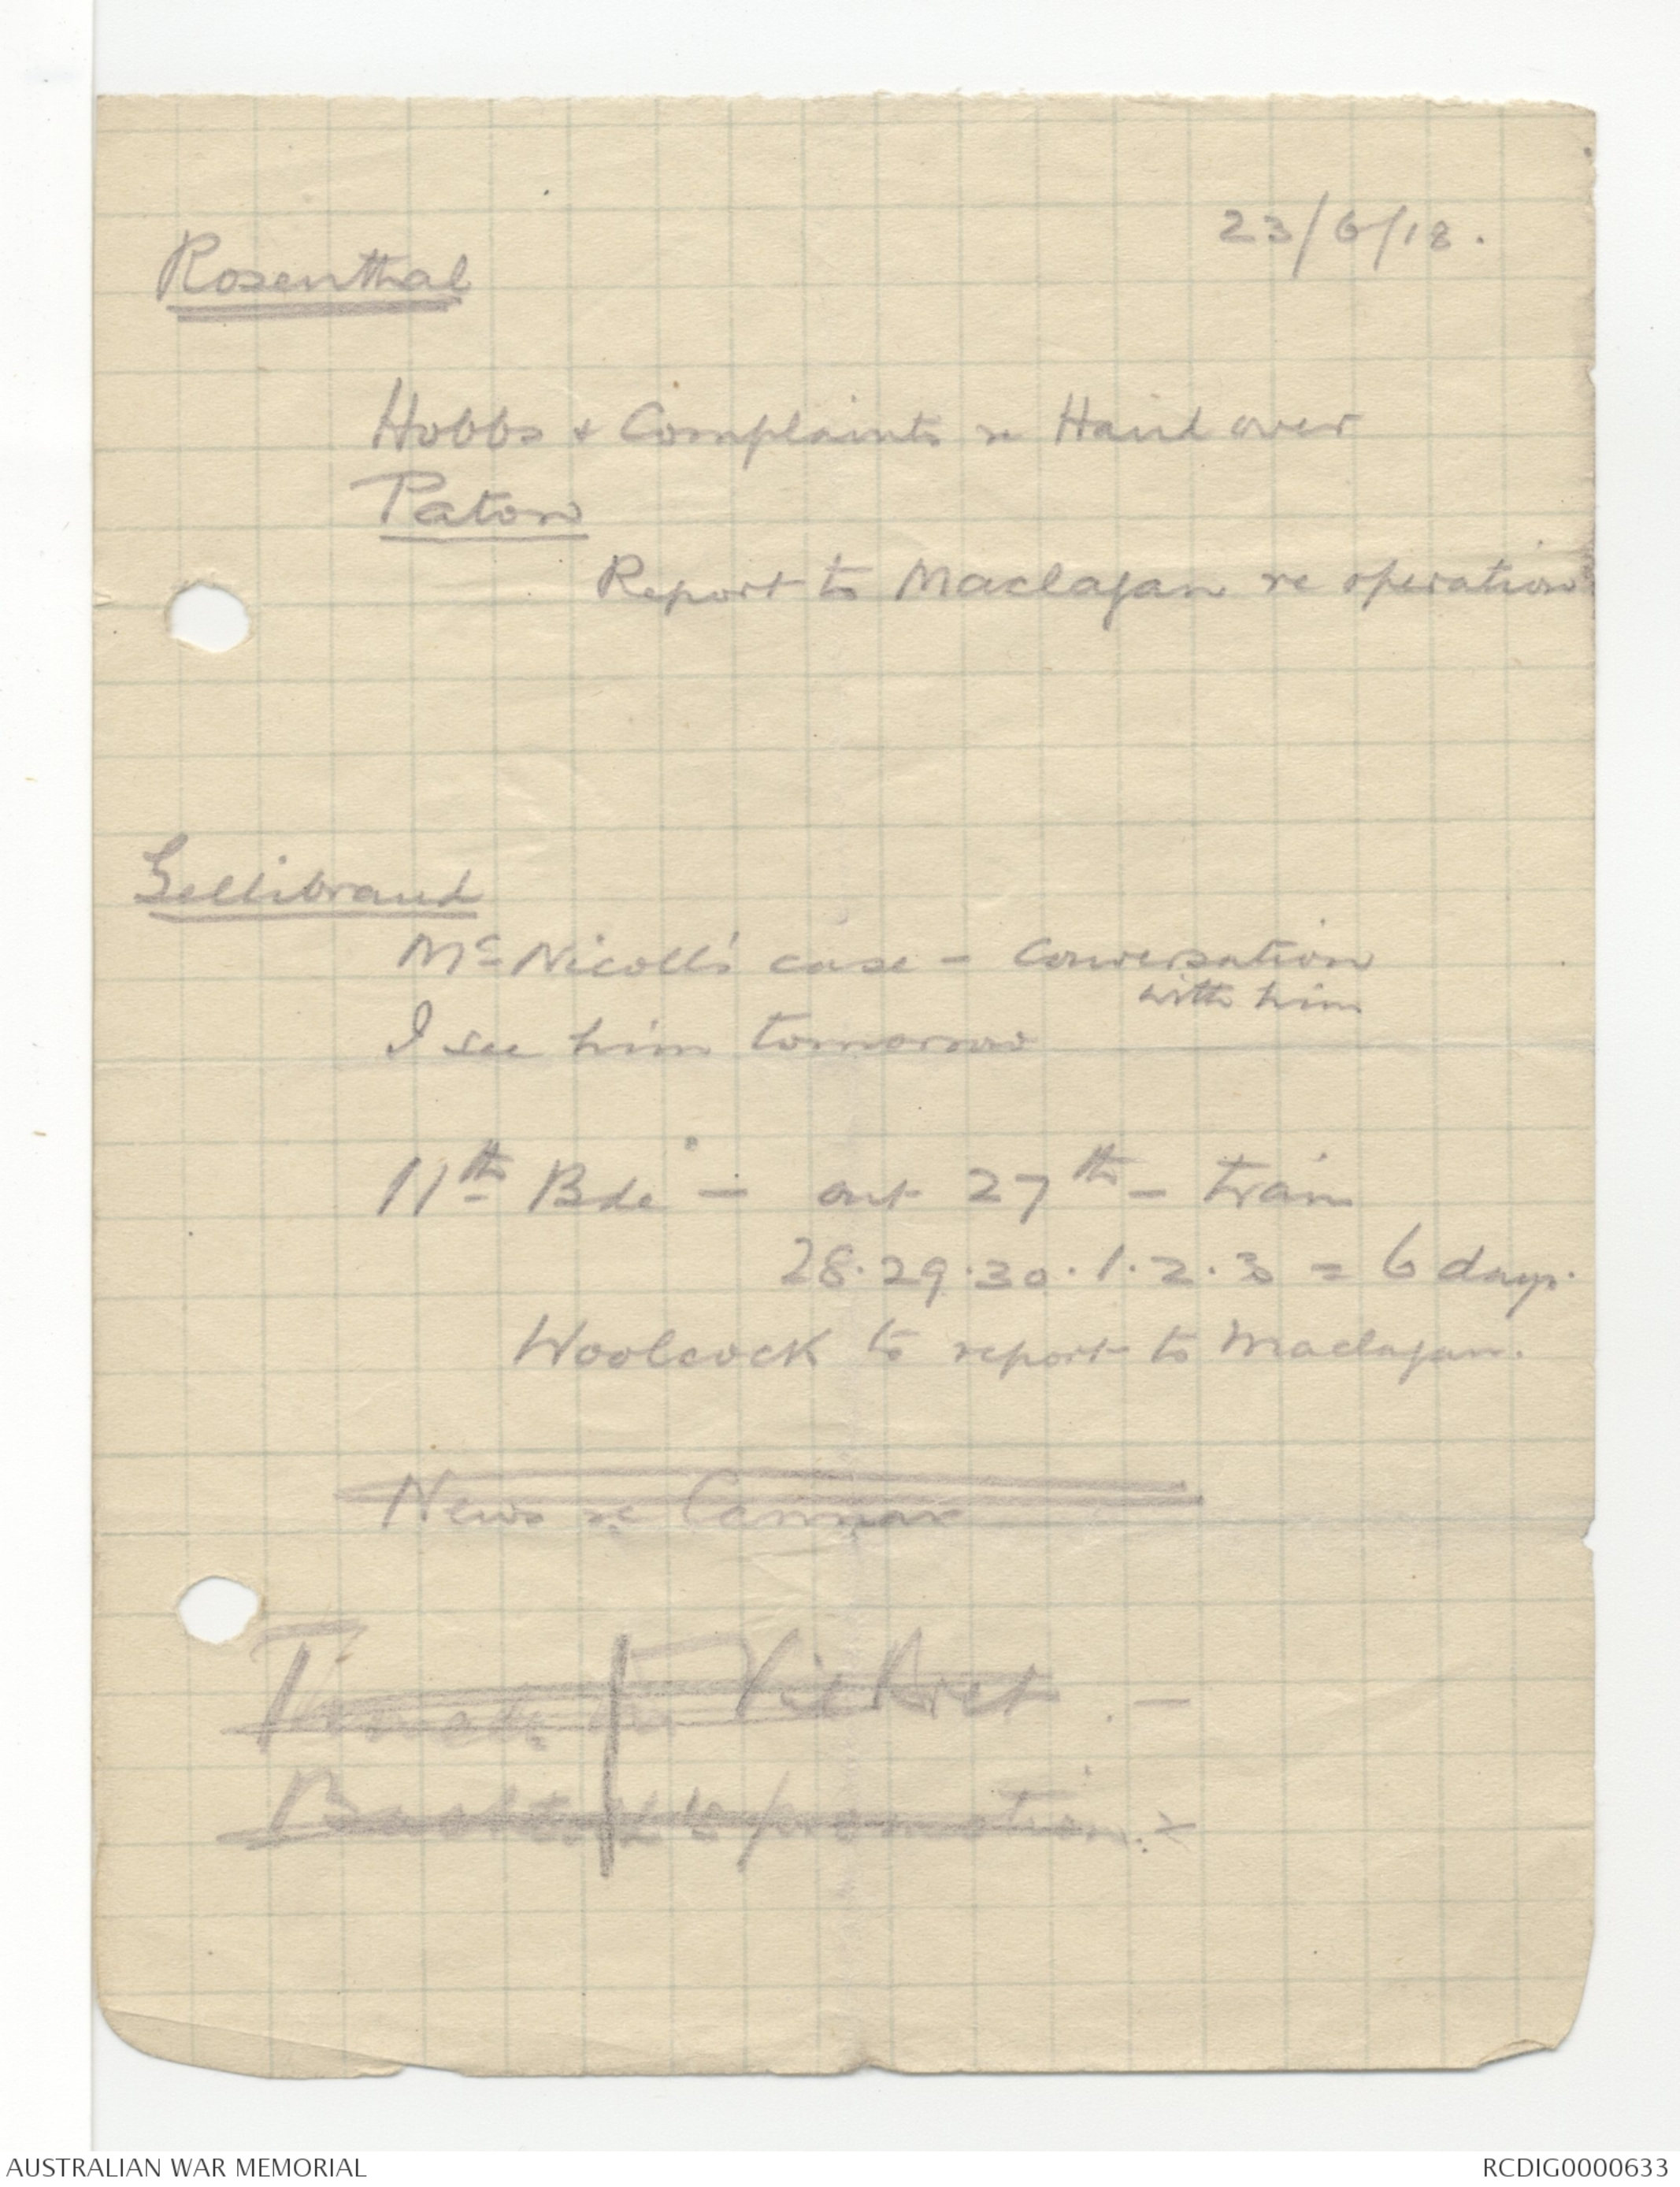 23/6/18.
Rosenthal
Hobbs & Complaints re Hand over
Paton
Report to Maclagan re operation
Gellibrand
McNicoll's case - Conversation
with him
I see him tomorrow
11th Bde - out 27th - train
28.29.30.1.2.3 = 6 days.
Woolcock to report to Maclagan.
News re Cannan
to promotion
AUSTRALIAN WAR MEMORIAL
RCDIG0000633